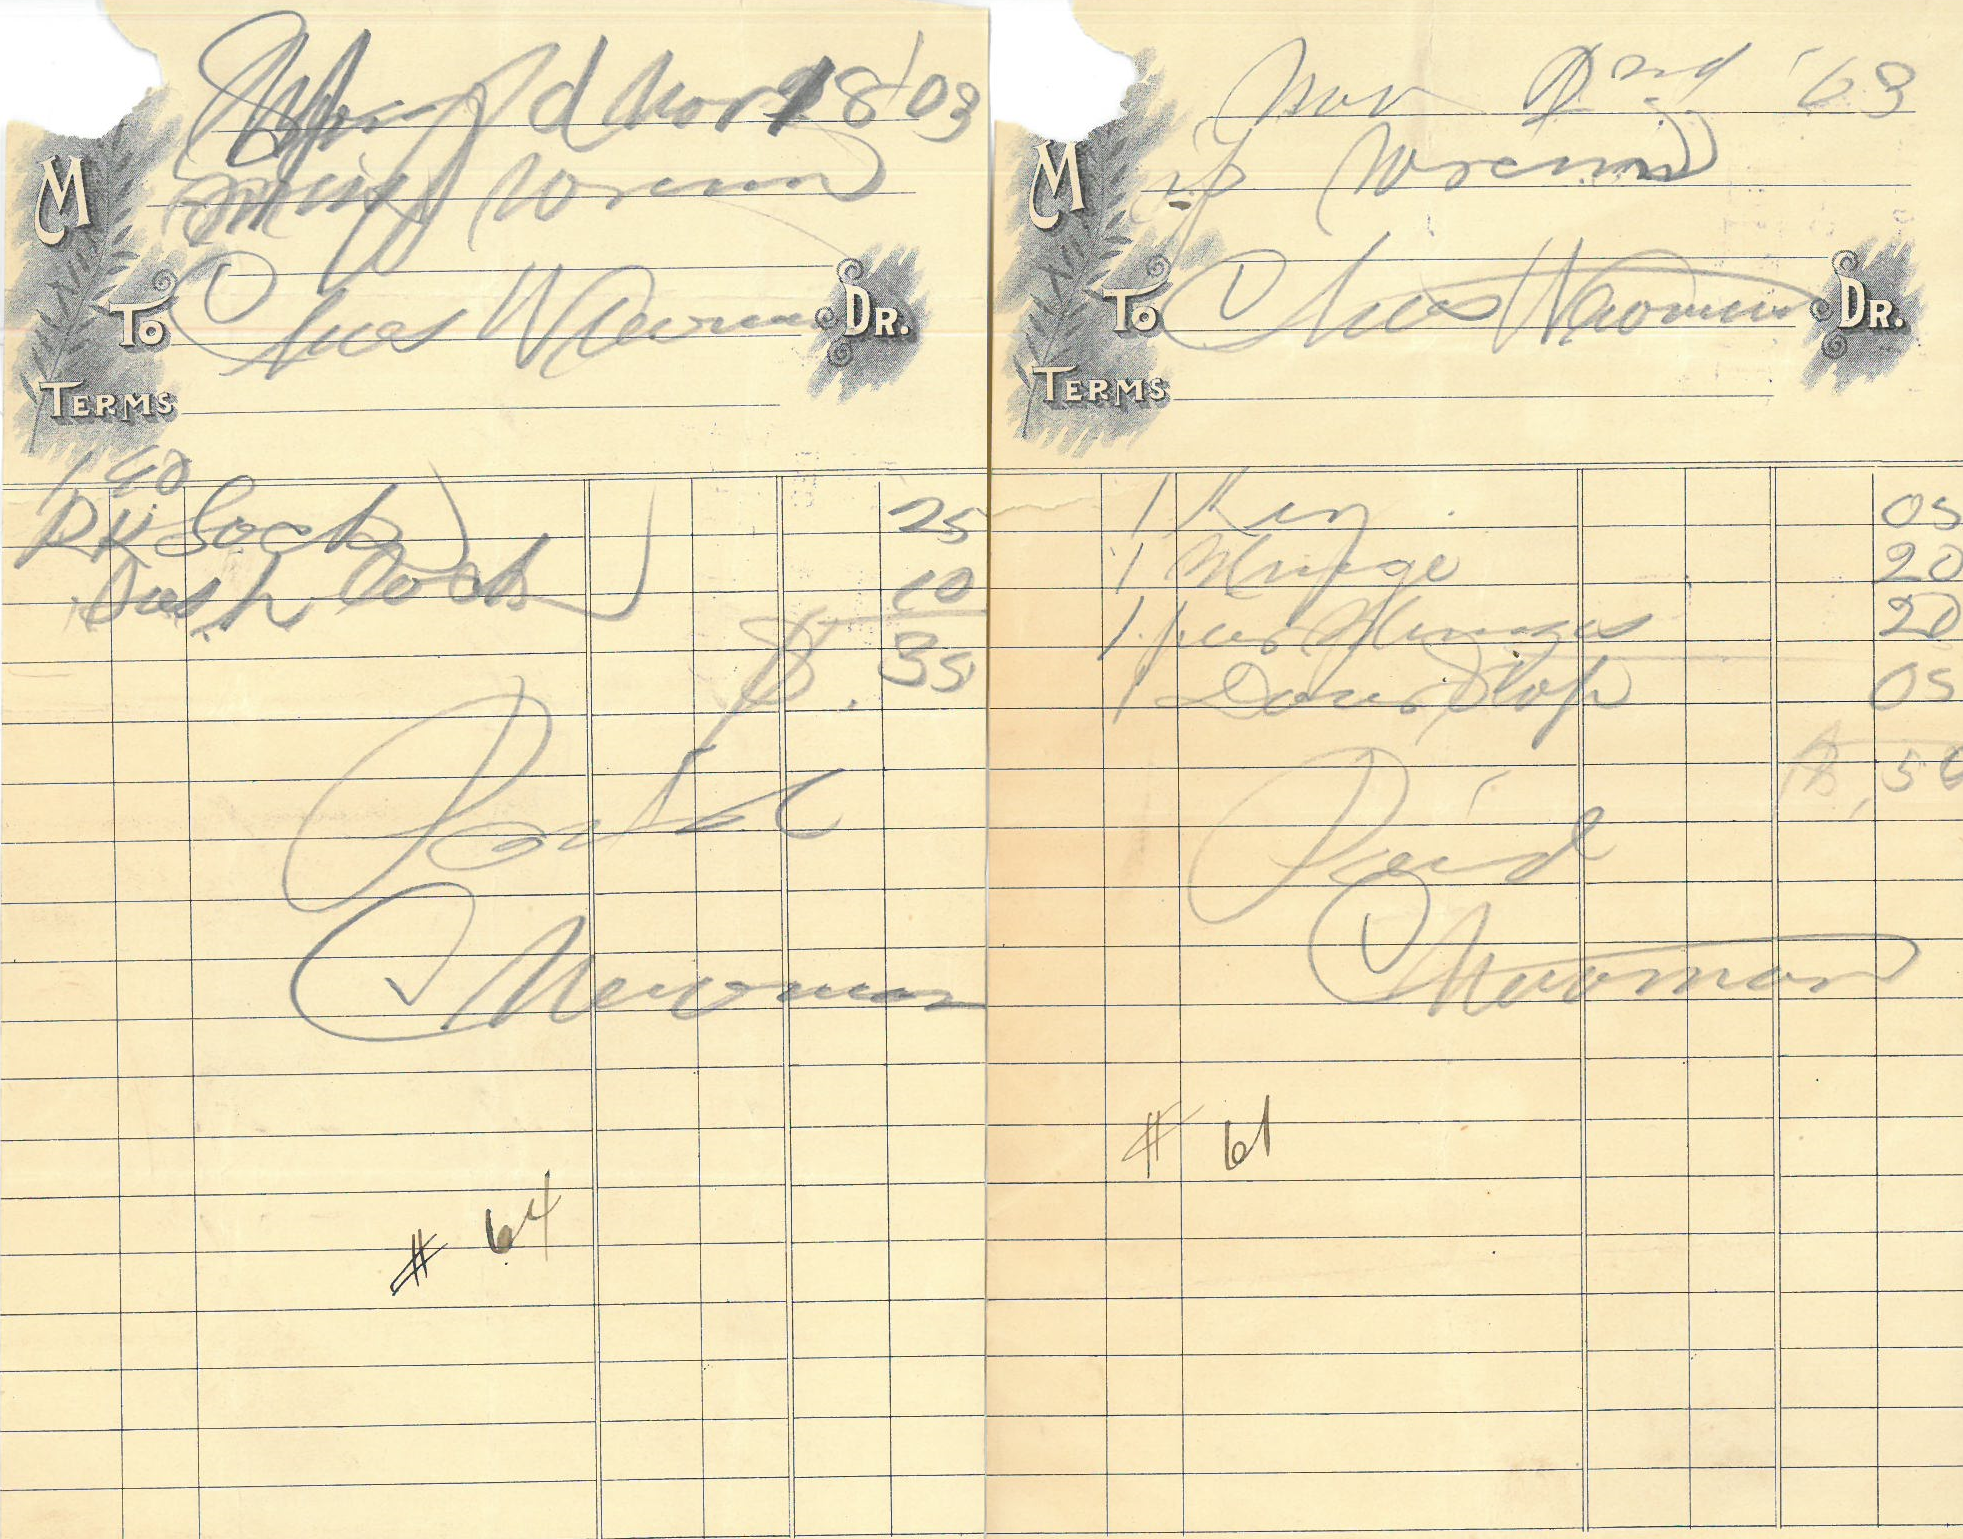 Nov 18 '03
M
To Chas Newman Dr.
Terms
1 40
Lock 25
Sash Lock 10
$ .35
Paid
C Newman
# 64
Nov 2nd '03
M
To Chas Newman Dr.
Terms
1 Key 05
1 Hinge 20
1 pr Hinges 20
1 Door Stop 05
$ .50
Paid
C Newman
# 61